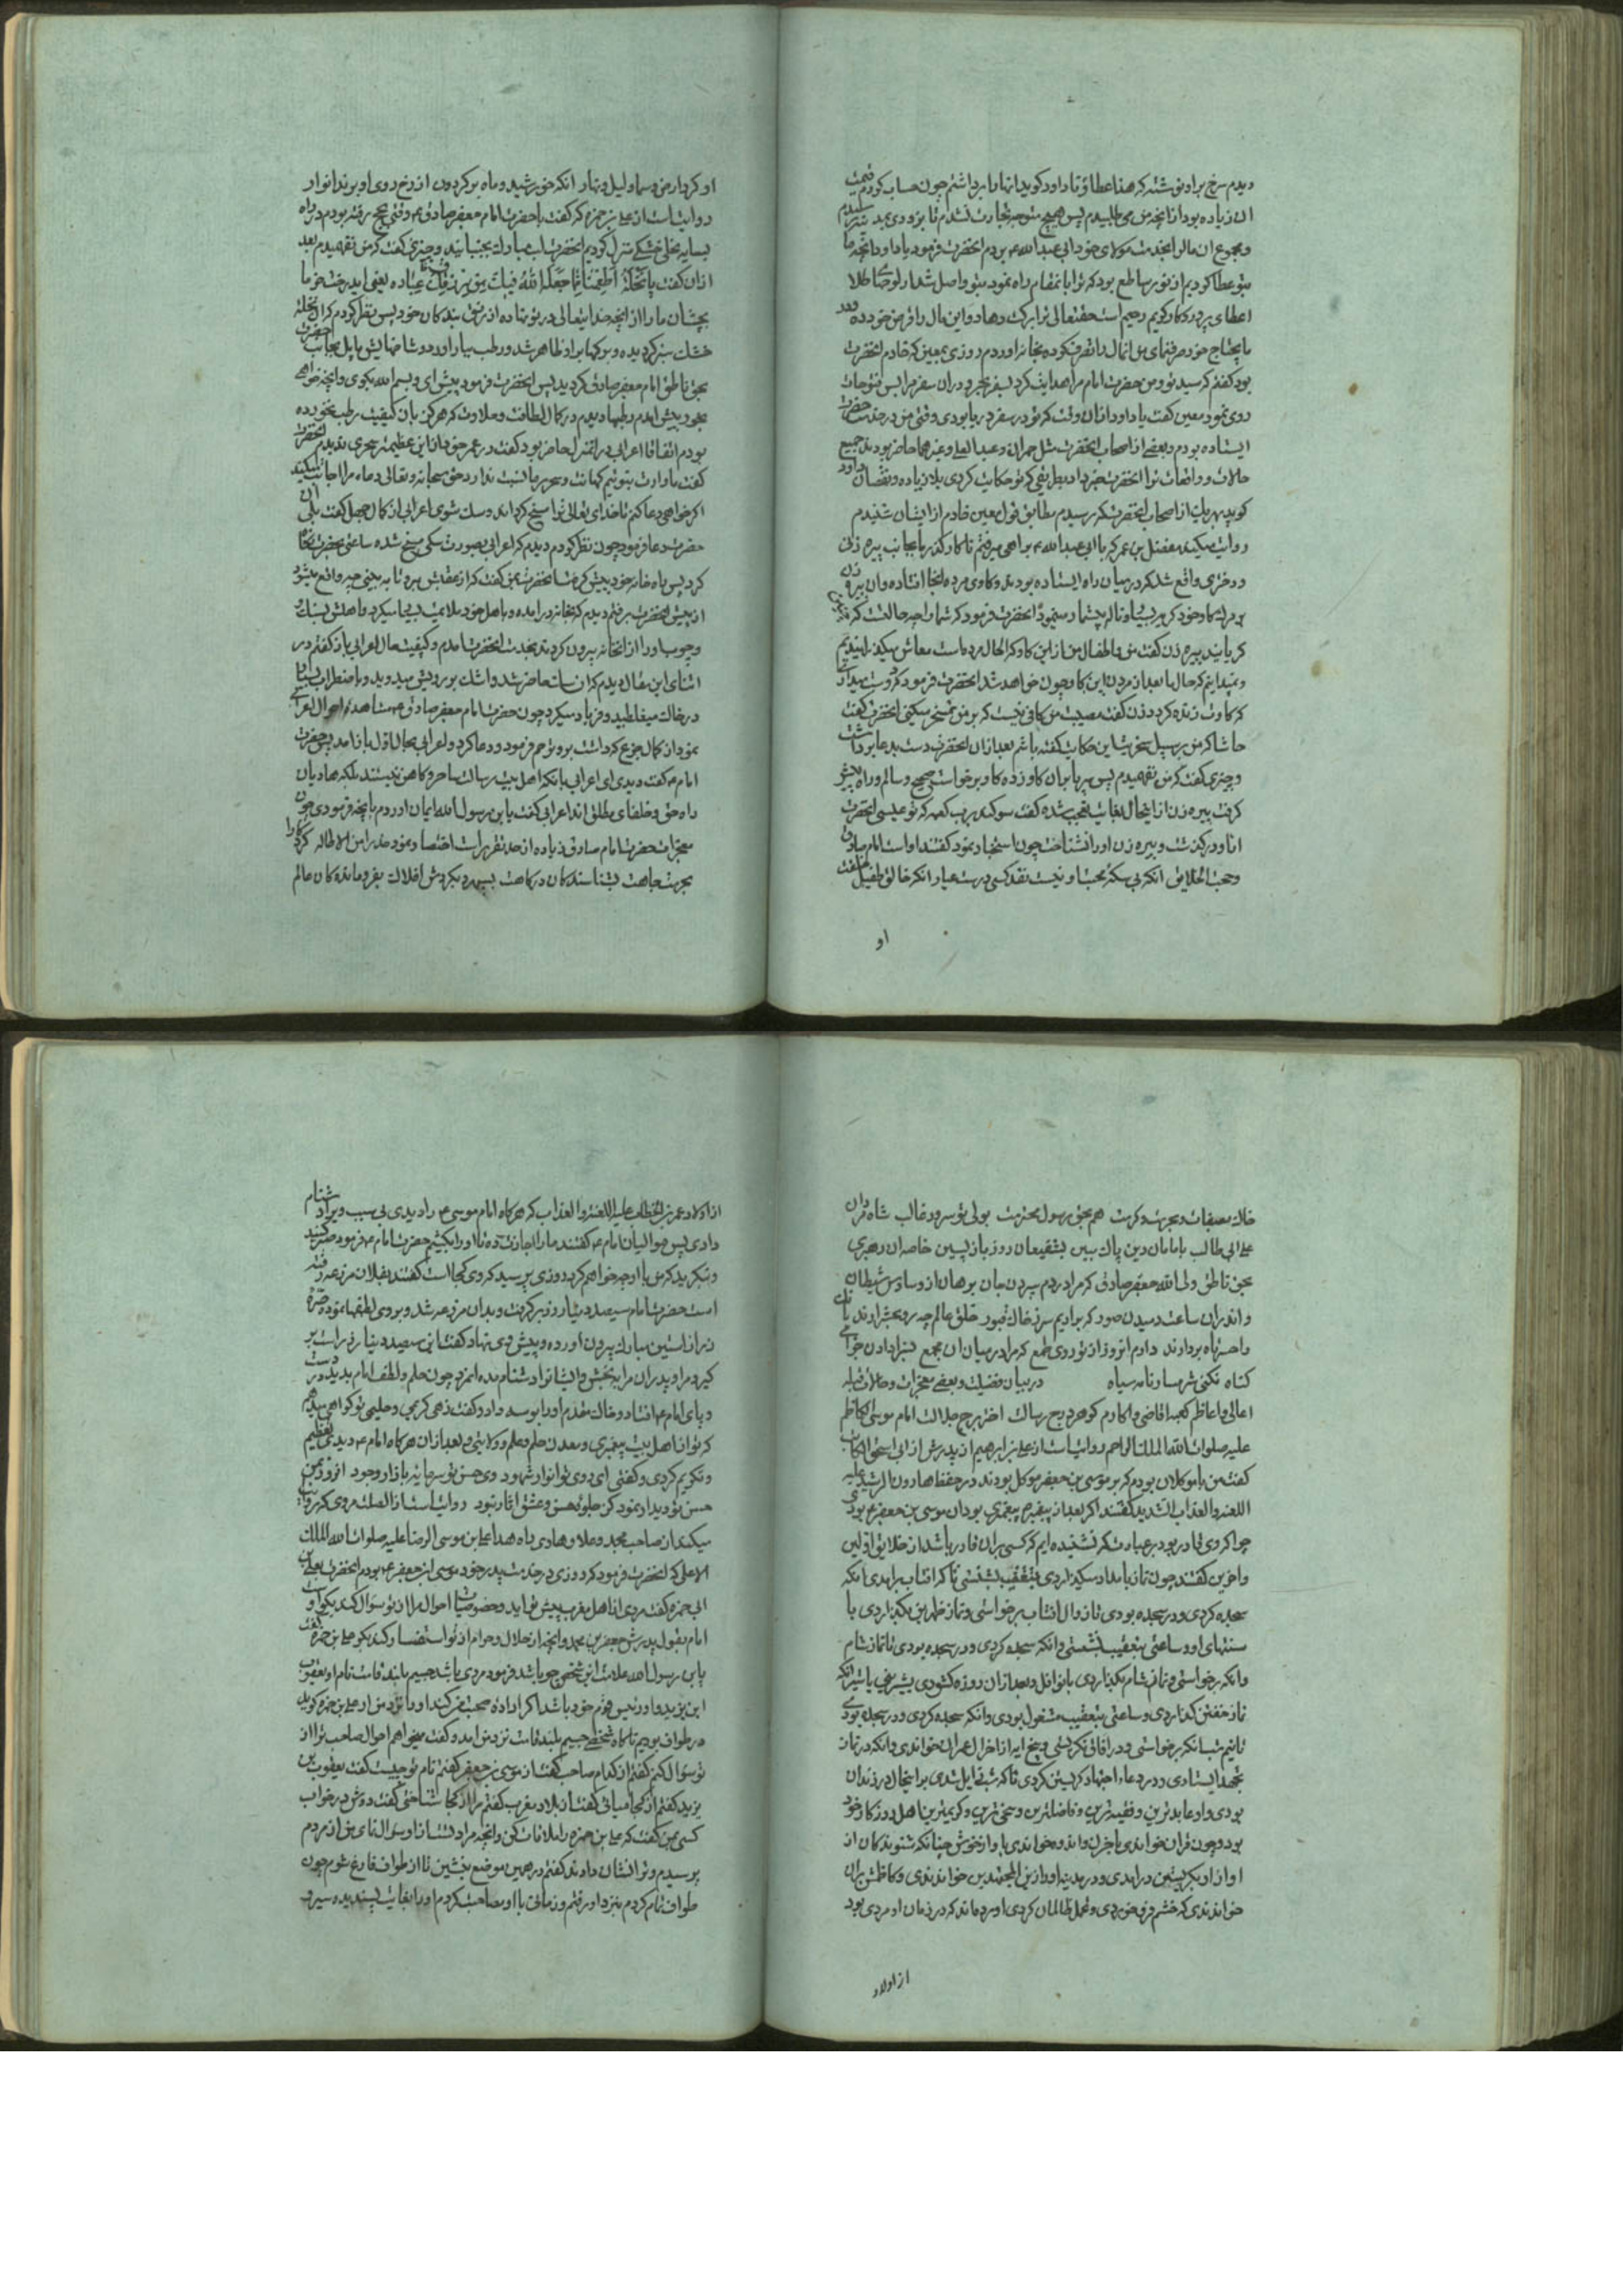 دیدم سرخ بر او نوشته که هذا عطاؤنا داود کوید انها را برداشتم چون حساب کردم قیمت
ان زیاده بود از انچه من می طلبیدم پس هیچ متوجه تجارت نشدم تا بزودی بمدینه رسیدم
و مجموع ان مال را بخدمت مولای خود ابی عبد الله ع بردم انحضرت فرمود یا داود انچه ما
بتو عطا کردیم از نور ساطع بود که ترا بانمقام راه نمود بتو واصل شد از لوحهای طلا
اعطای پروردکار کریم رحیم است حقتعالی ترا برکت دهاد و این مال را قرض خود ده و بقدر
مایحتاج خود صرف نمای من انمال را تصرف کرده بخانه اوردم روزی بمعین که خادم انحضرت
بود کفتم که سید تو و من حضرت امام مرا هدایت کرد بسفر بحر در ان سفر مرا بس فتوحات
روی نمود معین کفت یا داود در ان وقت که تو در سفر دریا بودی وقتی من در خدمت حضرت
ایستاده بودم و بعضی از اصحاب انحضرت مثل حمران و عبد الاعلی و غیرهما حاضر بودند جمیع
حالات و واقعات ترا انحضرت خبر داد بطریقی که تو حکایت کردی بلا زیاده و نقصان داود
کوید بهر یک از اصحاب انحضرت که رسیدم مطابق قول معین خادم از ایشان شنیدم
روایت میکند مفضل بن عمر که با ابی عبد الله ع براهی میرفتم ناکاه کذر ما بجانب پیره زنی
و دختری واقع شد که در میان راه ایستاده بودند و کاوی مرده انجا افتاده و ان پیره زن
بر مرک کاو خود کریه بسیار و ناله بیشمار مینمود انحضرت فرمود که شما را چه حالتست که چنین
کریانید پیره زن کفت من و اطفال من از این کاو که الحال مرده است معاش میکذرانیدیم
و نمیدانیم که حال ما بعد از مردن این کاو چون خواهد شد انحضرت فرمود که دوست میداری
که کاوت زنده کردد زن کفت مصیبت من کافی نیست که بر من تمسخر میکنی انحضرت کفت
حاشا که من بر سبیل سخریت این حکایت کفته باشم بعد از ان انحضرت دست بدعا برداشت
و چیزی کفت که من نفهمیدم پس سر پا بران کاو زده کاو برخواست صحیح و سالم و راه پیش
کرفت پیره زن از اینحال بغایت متعجب شده کفت سوکند برب کعبه که تو عیسی انحضرت
از او در کذشت و پیره زن او را نشناخت چون استخبار نمود کفتند او است امام صادق
و حجت الخلایق انکه بی سکه محبت او نیست نقد کسی درست عیار انکه خالق طفیل خلقت
او
او کرد ارض و سما و لیل و نهار انکه خورشید و ماه بر کردون از رخ روی او برند انوار
روایتست از علی بن حمزه که کفت با حضرت امام جعفر صادق ع وقتی بحج رفته بودم در راه
بسایه نخلی خشک منزل کردیم انحضرت لب مبارک بجنبانید و چیزی کفت که من نفهمیدم بعد
از ان کفت یا نخلة اطعمنا مما جعل الله فیک من رزق عباده یعنی ای درخت خرما
بچشان ما را از انچه خدایتعالی در تو نهاده از رزق بندکان خود پس نظر کردم که ان نخله
خشک سبز کردیده و برکها بر او ظاهر شد و رطب بسیار اورد و شاخهایش مایل بجانب حضرت
بحق ناطق امام جعفر صادق کردید پس انحضرت فرمود پیش ای و بسم الله بکوی و انچه خواهی
بخور پیش امدم رطبها دیدم در کمال لطافت و حلاوت که هرکز بان کیفیت رطب نخورده
بودم اتفاقا اعرابی در انمنزل حاضر بود کفت در عمر خود از این عظیمتر سحری ندیدم انحضرت
کفت ما وارث پیغمبریم کهانت و سحر بما نسبت ندارد حق سبحانه و تعالی دعاء ما را اجابت میکند
اکر خواهی دعا کنم تا خدای تعالی ترا مسخ کرداند و سک شوی اعرابی از کمال جهل کفت بلی ان
حضرت دعا فرمود چون نظر کردم دیدم که اعرابی بصورت سکی مسخ شده ساعتی بحضرت نکاه
کرد پس راه خانه خود پیش کرفت انحضرت بمن کفت که از عقبش برو تا به بینی چه واقع میشود
از پیش انحضرت برفتم دیدم که بخانه درامده و باهل خود ملایمت بیجا میکرد و اهلش بسنک
و چوب او را از انخانه بیرون کردند بخدمت انحضرت امدم و کیفیت حال اعرابی باز کفتم در
اثنای این مقال دیدم که ان سک حاضر شد و اشک بر رویش میدوید و باضطراب بسیار
در خاک میغلطید و فریاد میکرد چون حضرت امام جعفر صادق ع مشاهده احوال اعرابی
نمود از کمال جزع که داشت برو ترحم فرمود و دعا کرد و اعرابی بحال اول باز امد پس حضرت
امام ع کفت دیدی ای اعرابی بانکه اهل بیت رسالت ساحر و کاهن نیستند بلکه هادیان
راه حق و خلفای مطلق اند اعرابی کفت یا بن رسول الله ایمان اوردم بانچه فرمودی چون
معجزات حضرت امام صادق زیاده از حد تقریرات اختصار نمود حذرا من الاطاله کردکارا
بحرمت جاهت بشناسندکان درکاهت بسپهر و بکردش افلاک بفرو ماندکان عالم
خاک بصفات و بحرمت و کرمت هم بحق رسول محترمت بولی تو سرور غالب شاه مردان
علی ابی طالب بامامان دین پاک یقین بشفیعان روز بازپسین خاصه ان رهبری
بحق ناطق ولی الله جعفر صادق که مرا در دم سپردن جان برهان از وساوس شیطان
و اندران ساعت دمیدن صور که براریم سر ز خاک قبور خلق عالم چه رو بحشر اورند بانک
واحسرتاه بردارند دارم انروز از تو روی طمع که مرا در میان ان مجمع نبرادادن جزای
کناه نکنی شرمسار نامه سیاه در بیان فضیلت و بعضی معجزات و حالات قبله
اعالی و اعاظم کعبه اقاضی و اکارم کوهر درج رسالت اختر برج جلالت امام موسی الکاظم
علیه صلوات الله الملک الراحم روایتست از علی بن ابراهیم از پدرش از ابی اسحق الکاتب
کفت من با موکلان بودم که بر موسی بن جعفر موکل بودند در حفظ هارون الرشید علیه
اللعنه و العذاب الشدید کفتند اکر بعد از پیغمبر م پیغمبری بودی ان موسی بن جعفر ع بودی
چرا که وی قادر بود بر عبادت که نشنیده ایم که کسی بران قادر باشد از خلایق اولین
و اخرین کفتند چون نماز بامداد میکذاردی بتعقیب بنشستی تا که افتاب برامدی انکه
سجده کردی و در سجده بودی تا زوال افتاب برخواستی و نماز ظهرین بکذاردی با
سنتهای او و ساعتی بتعقیب نشستی و انکه سجده کردی و در سجده بودی تا نماز شام
وانکه برخواستی و نماز شام بکذاردی با نوافل و بعد از ان روزه کشودی بشربتی یا شیر انکه
نماز خفتن کذاردی و ساعتی بتعقیب مشغول بودی وانکه سجده کردی و در سجده بودی
تا نیم شب انکه برخواستی و در افاق نکریستی و پنج ایه از اخر ال عمران خواندی و انکه در نماز
تهجد ایستادی و در دعاء اجتهاد کریستن کردی تا که شب زایل شدی بر اینحال در زندان
بودی و او عابدترین و فقیه ترین و فاضلترین و سخی ترین و کریمترین اهل روزکار خود
بود و چون قران خواندی باحزن و اندوه خواندی باواز خوش چنانکه شنوندکان از
اواز او بکریستن درامدی و در مدینه او را زین المجتهدین خواندندی و کاظمش بران
خواندندی که خشم فرو خوردی و تحمل ظالمان کردی اورده اند که در زمان او مردی بود
از اولاد
از اولاد عمر بن الخطاب علیه اللعنه و العذاب که هرکاه امام موسی ع را دیدی بی سبب ویرا دشنام
دادی پس موالیان امام ع کفتند ما را اجازت ده تا او را بکشیم حضرت امام ع فرمود صبر کنید
و بنکرید که من با او چه خواهم کرد روزی پرسید که وی کجا است کفتند بفلان مزرعه رفته
است حضرت امام سیصد دینار زر برکرفت و بدان مزرعه شد و بر وی لطفها نمود و صره
زر از استین مبارک بیرون اورده و پیش وی نهاد کفت این سیصد دینار زر راست بر
کیر و مرا و پدران مرا ببخش و ایشانرا دشنام مده انمرد چون حلم و لطف امام بدید در دست
و پای امام ع افتاد و خاک مقدم او را بوسه داد و کفت زهی کریمی و حلیمی تو کواهی میدهم
که تو از اهل بیت پیغمبری و معدن حلم و علم و ولایتی و بعد از ان هرکاه امام ع دیدی تعظیم
و تکریم کردی و کفتی ای روی تو انوار شهود وی حسن تو سرمایه بازار وجود افروز بمن
حسن تو دیدار نمود کز جلوه حسن و عشق اثار نبود روایتست از ابا الصلت هروی که روایت
میکند از صاحب مجد و علا و هادی راه هدا علی بن موسی الرضا علیه صلوات الله الملک
الاعلی که انحضرت فرمود که روزی در خدمت پدر خود موسی بن جعفر ع بودم انحضرت بعلی بن
ابی حمزه کفت مردی از اهل مغرب پیش تو اید و خصوصیات احوال مرا از تو سؤال کند بکو او
امام بقول پدرش جعفر بن محمد و انچه از حلال و حرام از تو استفسار کند بکو علی بن حمزه کفت
یا بن رسول الله علامت این شخص چه باشد فرمود مردی باشد جسیم بلند قامت نام او یعقوب
ابن یزید و او رئیس قوم خود باشد اکر اراده صحبت من کند او را نزد من ار علی بن حمزه کوید
در طواف بودیم ناکاه شخصی جسیم بلند قامت نزد من امد و کفت میخواهم احوال صاحب ترا از
تو سؤال کنم کفتم از کدام صاحب کفت از موسی بن جعفر کفتم نام تو چیست کفت یعقوب بن
یزید کفتم از کجا میائی کفت از بلاد مغرب کفتم مرا از کجا شناختی کفت دوش در خواب
کسی بمن کفت که علی بن حمزه را ملاقات کن و انچه مراد تست از او سؤال نمای من از مردم
پرسیدم و ترا نشان دادند کفتم در همین موضع بنشین تا از طواف فارغ شوم چون
طواف تمام کردم بنزد او رفتم و زمانی با او مصاحبت کردم او را بغایت پسندیده سیرت